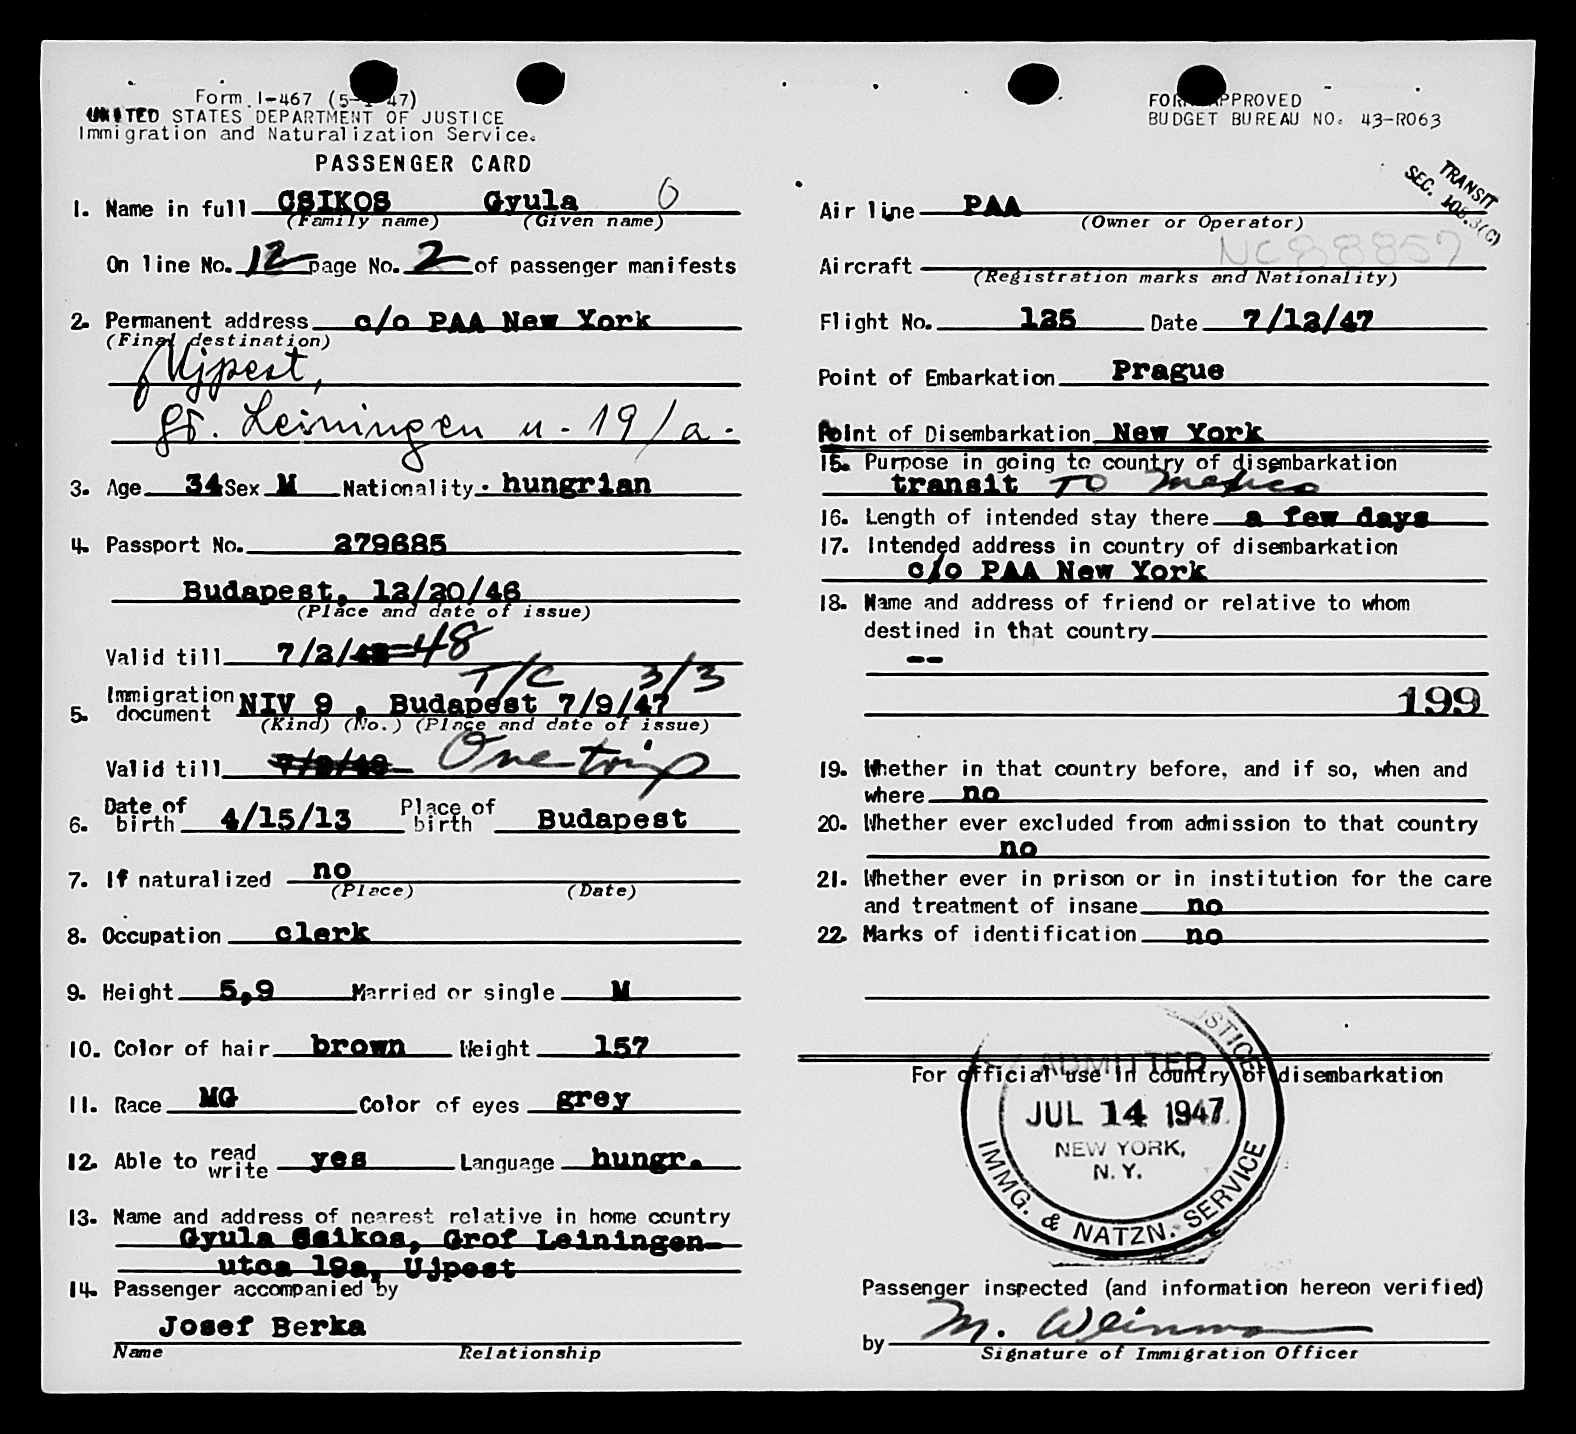 Form I-467 (5-1-47)
UNITED STATES DEPARTMENT OF JUSTICE
Immigration and Naturalization Service.
PASSENGER CARD
FORM APPROVED
BUDGET BUREAU NO. 43-R063
TRANSIT
SEC. 106.3(C)
1. Name in full CSIKOS Gyula O
(Family name) (Given name)
On line No. 12 page No. 2 of passenger manifests
2. Permanent address c/o PAA New York
(Final destination)
Ujpest,
gf. Leiningen u. 19/a.
3. Age 34 Sex M Nationality hungrian
4. Passport No. 279685
Budapest, 12/20/46
(Place and date of issue)
Valid till 7/2/48 =48
T/C 3/3
5. Immigration document NIV 9 , Budapest 7/9/47
(Kind) (No.) (Place and date of issue)
Valid till One trip
6. Date of birth 4/15/13 Place of birth Budapest
7. If naturalized no
(Place) (Date)
8. Occupation clerk
9. Height 5,9 Married or single M
10. Color of hair brown Weight 157
11. Race MG Color of eyes grey
12. Able to read write yes Language hungr.
13. Name and address of nearest relative in home country
Gyula Csikos, Grof Leiningen-
utca 19a, Ujpest
14. Passenger accompanied by
Josef Berka
Name Relationship
Air line PAA
(Owner or Operator)
Aircraft NC88857
(Registration marks and Nationality)
Flight No. 125 Date 7/12/47
Point of Embarkation Prague
Point of Disembarkation New York
15. Purpose in going to country of disembarkation
transit TO Mexico
16. Length of intended stay there a few days
17. Intended address in country of disembarkation
c/o PAA New York
18. Name and address of friend or relative to whom
destined in that country
--
199
19. Whether in that country before, and if so, when and
where no
20. Whether ever excluded from admission to that country
no
21. Whether ever in prison or in institution for the care
and treatment of insane no
22. Marks of identification no
For official use in country of disembarkation
JUSTICE
ADMITTED
JUL 14 1947
NEW YORK,
N.Y.
IMMG. & NATZN. SERVICE
Passenger inspected (and information hereon verified)
by M. Weinman
Signature of Immigration Officer